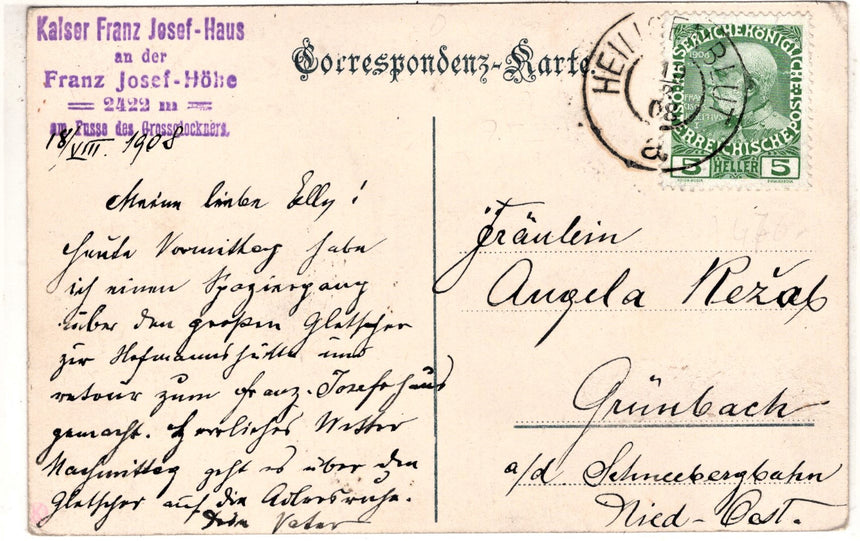 Kaiser Franz Josef-Haus
an der
Franz Josef-Höhe
2422 m
am Fusse des Grossglockners.
Correspondenz-Karte
HEILIGENBLUT
08
a
1908
KAISERLICHE KÖNIGLICHE
ÖSTERREICHISCHE POST
5 HELLER 5
18/VIII. 1908
Meine liebe Elly!
Heute Vormittag habe
ich einen Spaziergang
über den großen Gletscher
zur Hofmannshütte und
retour zum Franz-Josefshaus
gemacht. Herrliches Wetter
Nachmittag geht es über den
Gletscher auf die Adlersruhe.
Dein Vater
Fräulein
Angela Režab
Grünbach
a/d Schneebergbahn
Nied-Oest.